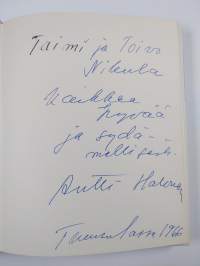 Taimi ja Toivo
Nikula
Kaikkea
hyvää
ja sydä-
mellisesti
Antti Halonen
1966